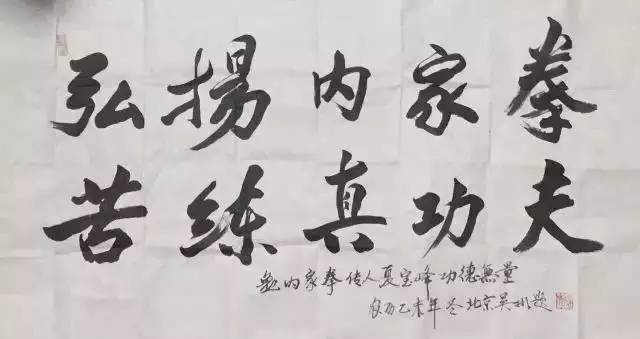 弘揚内家拳
苦练真功夫
内家拳传人夏宝峰功德無量
农历乙未年冬北京吴题